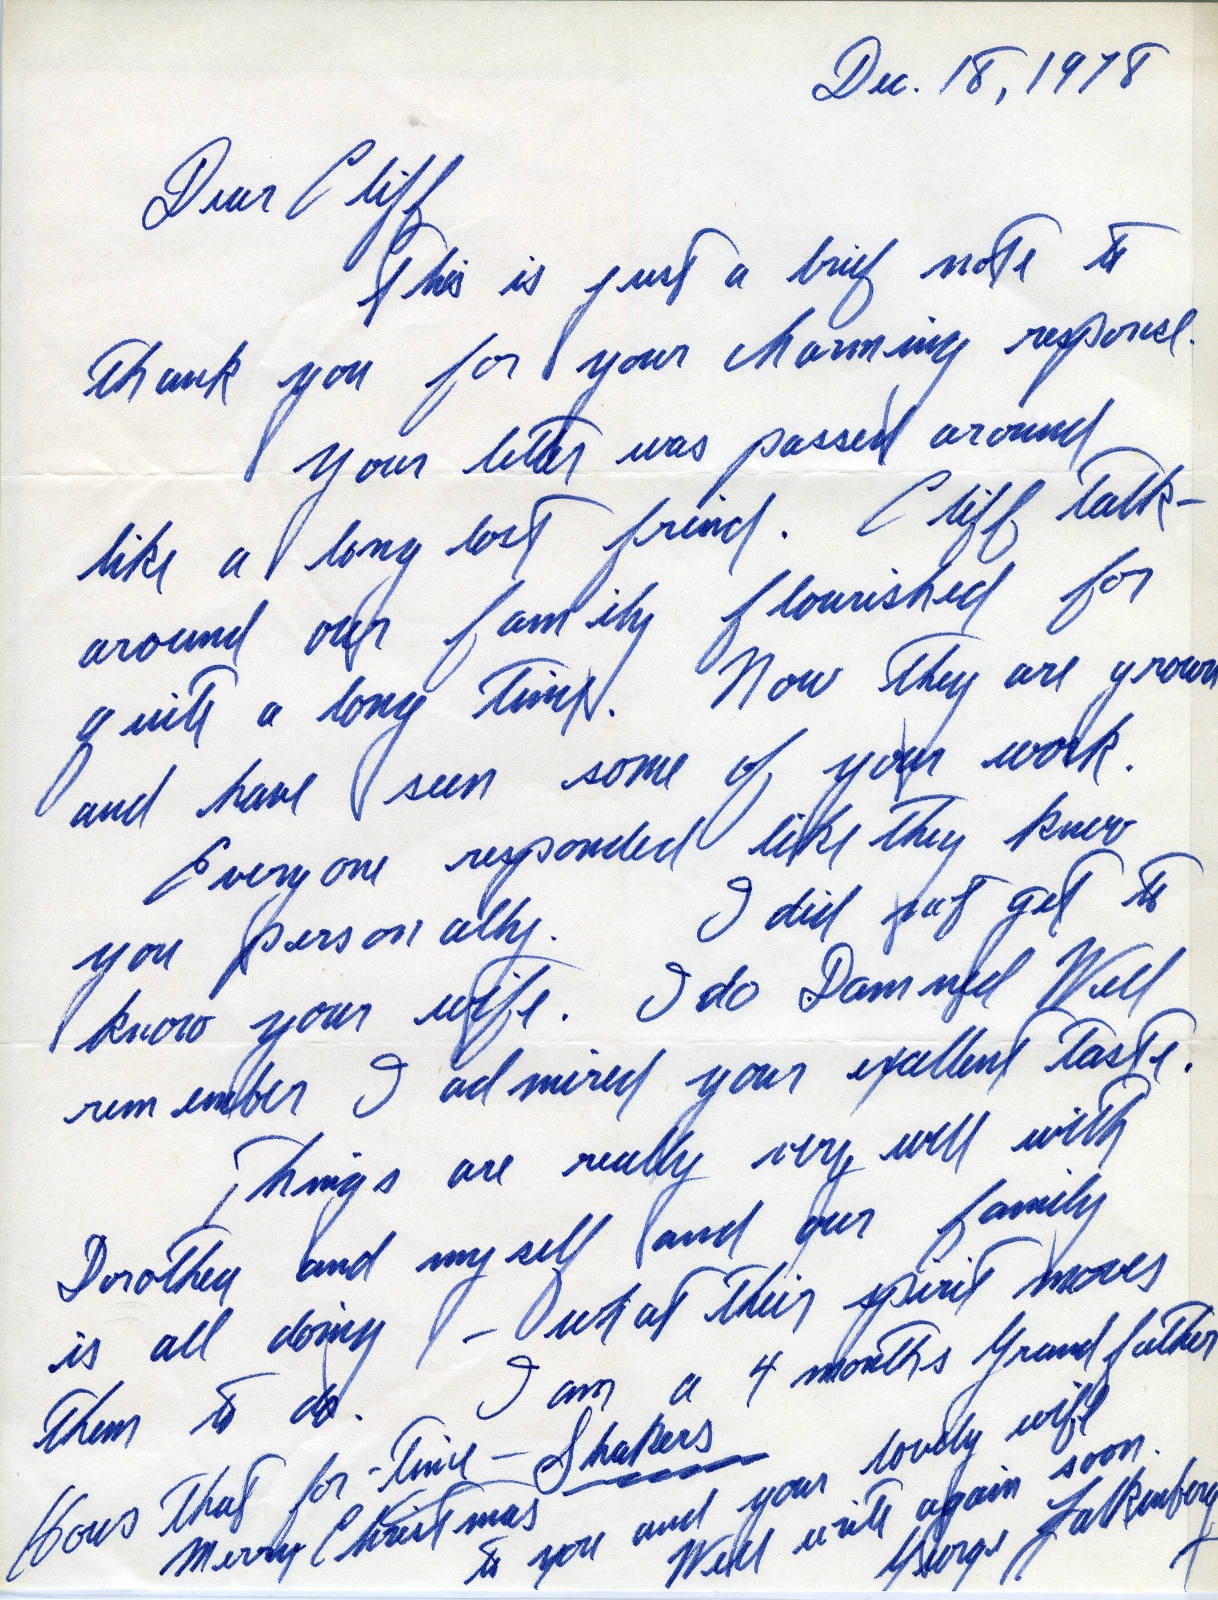 Dec. 18, 1978
Dear Cliff
This is just a brief note to
thank you for your charming response.
Your letter was passed around
like a long lost frind. Cliff talk-
around our family flourished for
quite a long time. Now they are grown
and have seen some of your work.
Everyone responded like they knew
you personally. I did not get to
know your wife. I do Damned Well
remember I admired your excellent taste.
Things are really very well with
Dorothea and myself and our family
is all doing - what their spirit moves
them to do. I am a 4 months Grandfather
Hows that for - time - Shakers
Merry Christmas
to you and your lovely wife
Will write again soon.
George Falkenberg